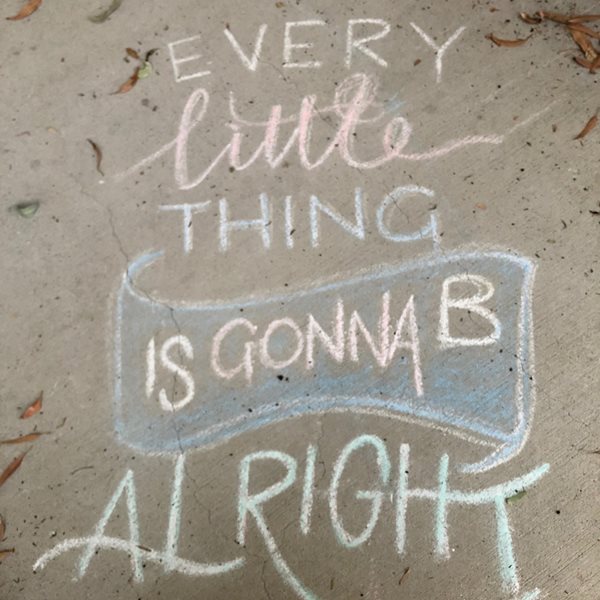 EVERY
little
THING
IS GONNA B
ALRIGHT